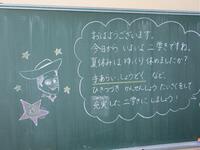 おはようございます。
今日から いよいよ 二学きですね。
夏休みは ゆっくり 休めましたか?
手あらい、しょうどく など、
ひきつづき かんせんしょう たいさくをして
充実した 二学きに しましょう!